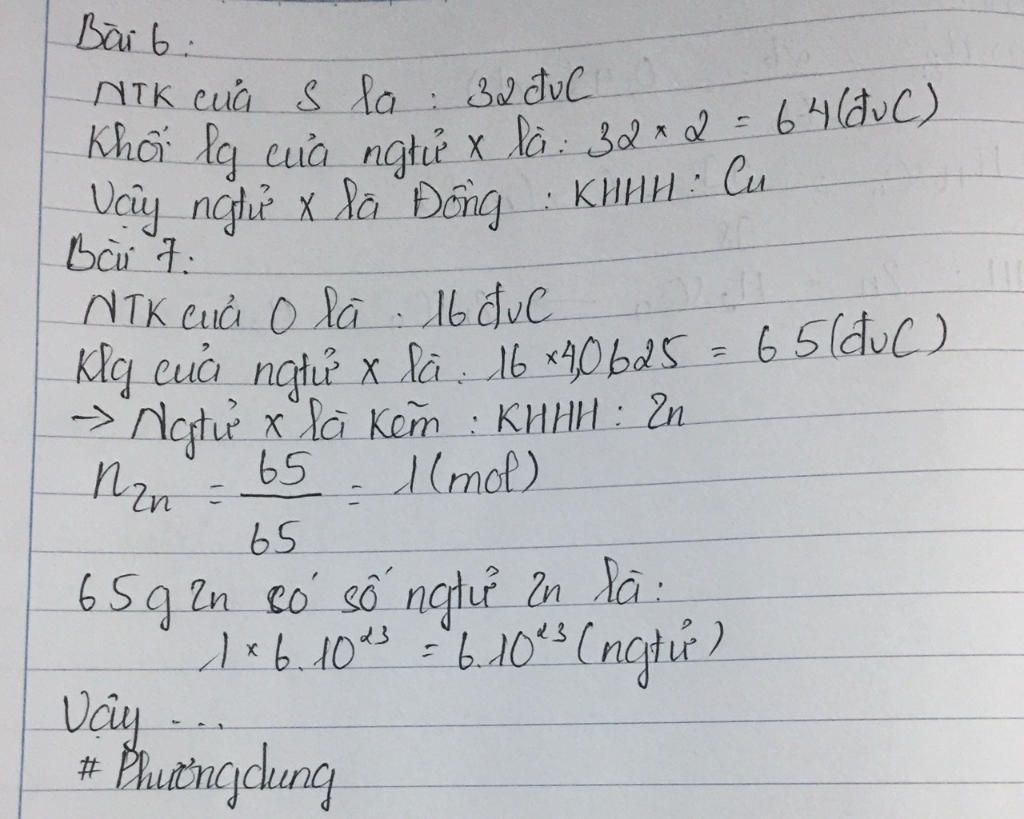 Bài 6:
NTK của S là : 32đvC
Khối lg của ngtử x là: 32 × 2 = 64(đvC)
Vậy ngtử x là Đồng : KHHH : Cu
Bài 7:
NTK của O là : 16đvC
Klg của ngtử x là: 16 ×4,0625 = 65(đvC)
→ Ngtử x là Kẽm : KHHH : Zn
n Zn = 65/65 = 1(mol)
65g Zn có số ngtử Zn là:
1 × 6.10²³ = 6.10²³ (ngtử)
Vậy ...
# Phươngdung